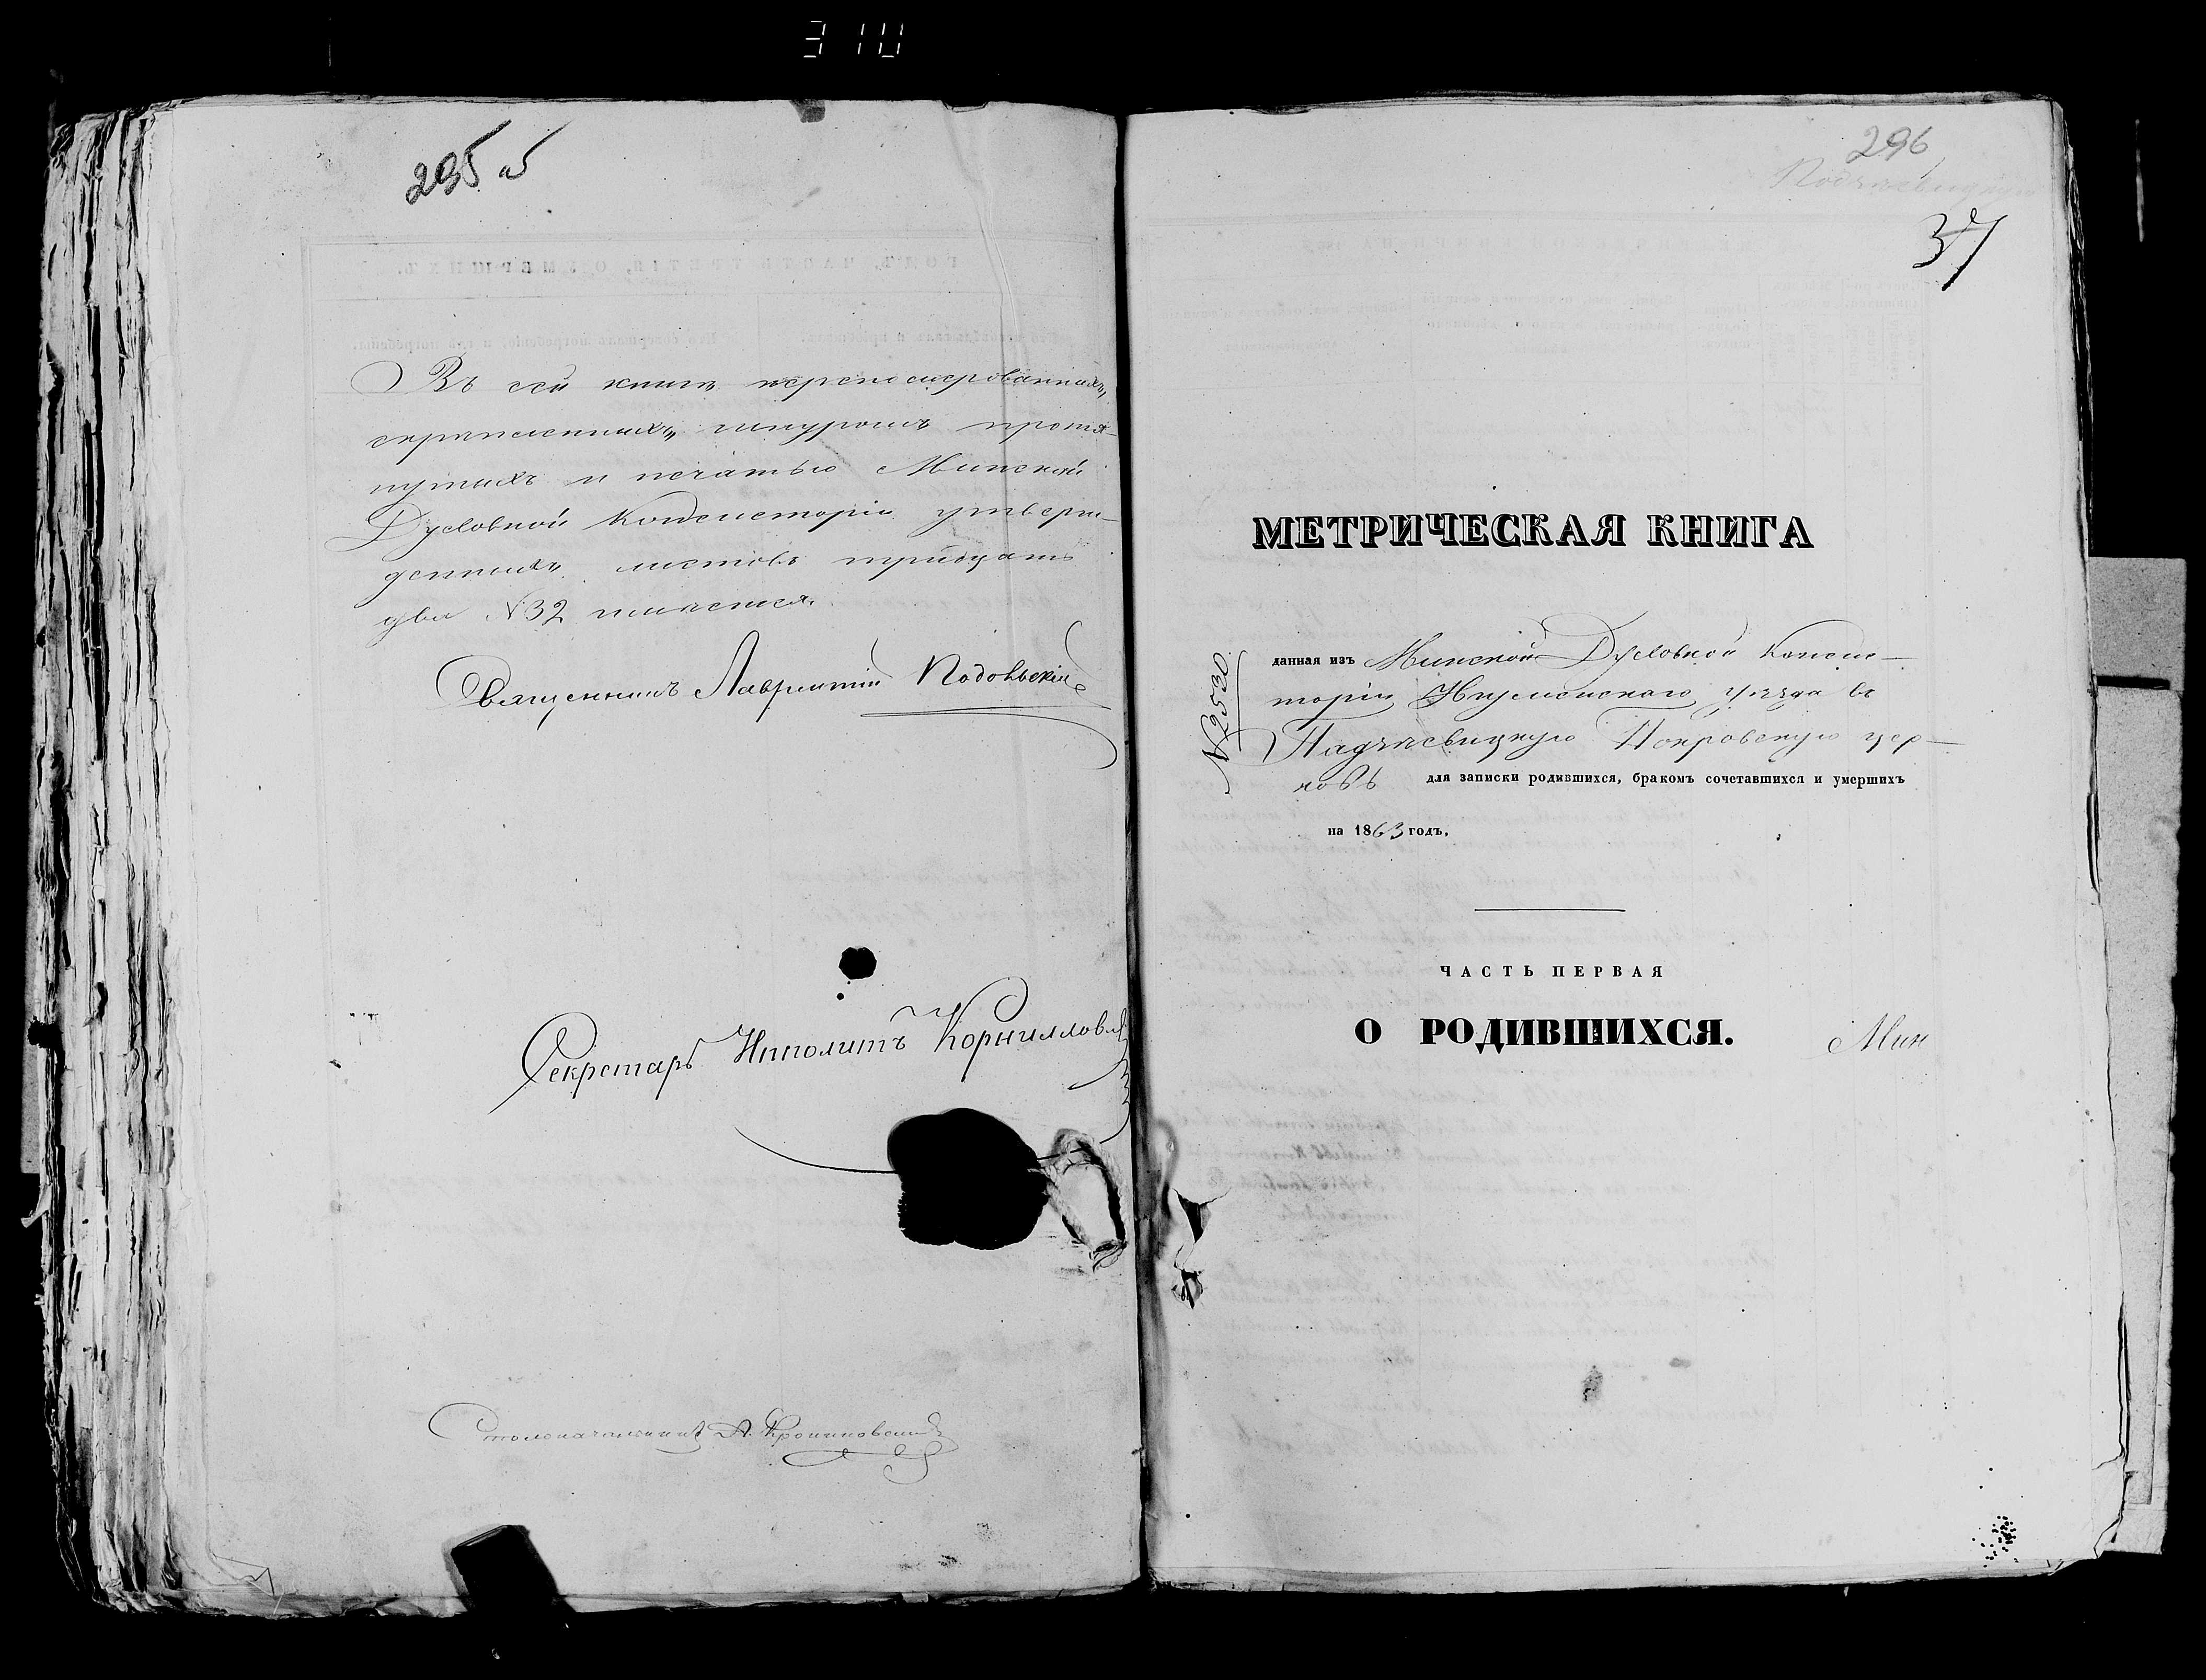 310
295 об
Въ сей книгѣ перенумерованныхъ,
скрѣпленныхъ, шнуромъ протя-
нутыхъ и печатью Минской
Духовной Консисторіи утверж-
денныхъ листовъ тридцать
два №32 имѣется.
Священникъ Лаврентій Подольскій
Секретарь Ипполитъ
Столоначальникъ А.
296
37
МЕТРИЧЕСКАЯ КНИГА
№2530
данная изъ Минской Духовной Консис-
торіи Игуменскаго уѣзда въ
Надѣевицкую Покровскую цер-
ковь для записки родившихся, бракомъ сочетавшихся и умершихъ
на 1863 годъ.
ЧАСТЬ ПЕРВАЯ
О РОДИВШИХСЯ.
Мин